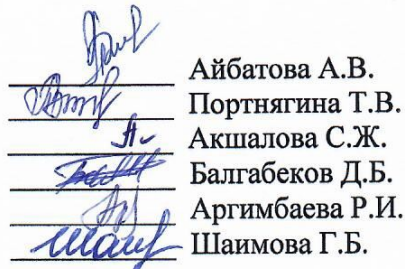 Айбатова А.В.
Портнягина Т.В.
Акшалова С.Ж.
Балгабеков Д.Б.
Аргимбаева Р.И.
Шаимова Г.Б.